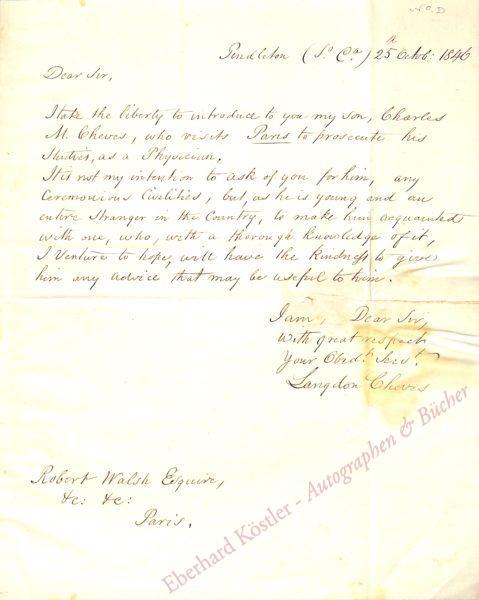 Pendleton (So. Ca.) 25 Octob: 1846
Dear Sir,
I take the liberty to introduce to you my son, Charles
M. Cheves, who visits Paris to prosecute his
Studies, as a Physician.
It is not my intention to ask of you for him, any
Ceremonious Civilities, but, as he is young and an
entire Stranger in the Country, to make him acquainted
with one, who, with a thorough knowledge of it,
I Venture to hope, will have the kindness to give
him any advice that may be useful to him.
I am, Dear Sir,
With great respect
Your Obedt. Servt.
Langdon Cheves
Robert Walsh Esquire,
&c: &c:
Paris.
Eberhard Köstler - Autographen & Bücher